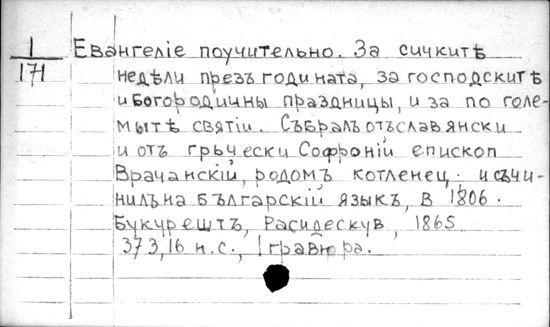 1/171
Евангелiе поучително. За сичкитѣ
недѣли презъ годината, за господскитѣ
и Богородичны праздницы, и за по голе-
мытѣ святiи. Събралъ отъ славянски
и отъ гръчески Софронiй епископ
Врачанскiй, родомъ котленец. и съчи-
нилъ на българскiй языкъ, в 1806.
Букурештъ, Расидескув, 1865
373, 16 н.с., 1 гравюра.